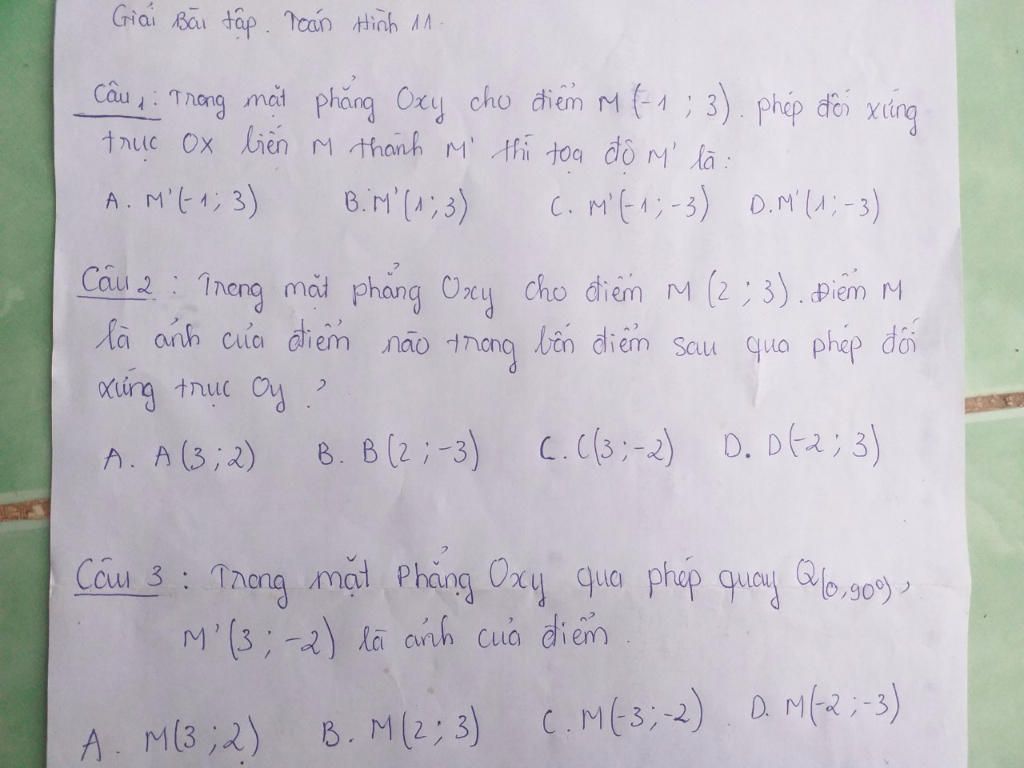 Giải Bài tập. Toán Hình 11.
Câu 1: Trong mặt phẳng Oxy cho điểm M(-1; 3). phép đối xứng
trục Ox biến M thành M' thì tọa độ M' là:
A. M'(-1; 3) B. M'(1; 3) C. M'(-1; -3) D. M'(1; -3)
Câu 2: Trong mặt phẳng Oxy cho điểm M (2; 3). Điểm M
là ảnh của điểm nào trong bốn điểm sau qua phép đối
xứng trục Oy?
A. A(3; 2) B. B(2; -3) C. C(3; -2) D. D(-2; 3)
Câu 3: Trong mặt Phẳng Oxy qua phép quay Q(0,90°),
M'(3; -2) là ảnh của điểm.
A. M(3; 2) B. M(2; 3) C. M(-3; -2) D. M(-2; -3)